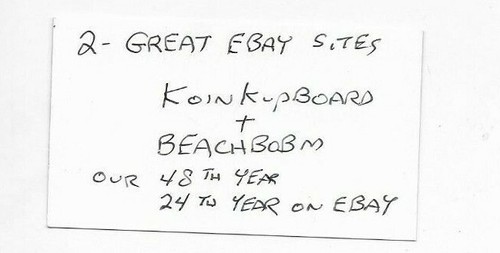 2- GREAT EBAY SITES
KOINKUPBOARD
+
BEACHBOBM
OUR 48TH YEAR
24TH YEAR ON EBAY